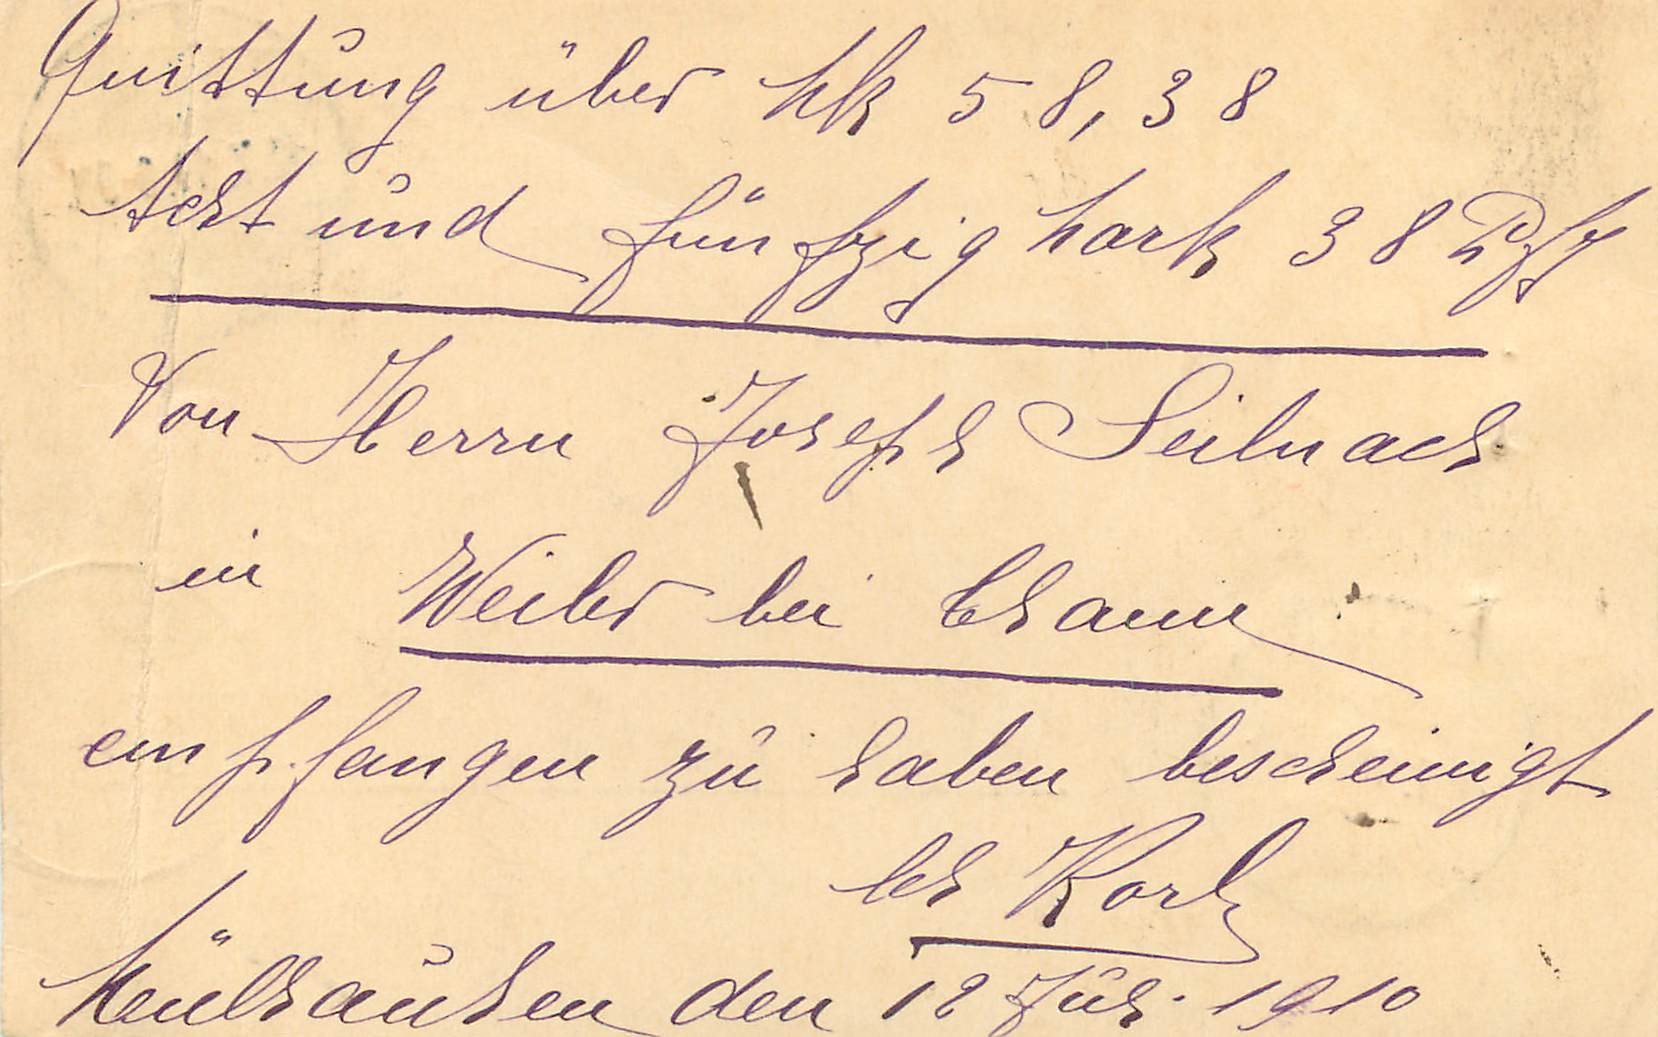 Quittung über Mk 58,38
Acht und fünfzig Mark 38 Pfg
Von Herrn Joseph Seilnach
in Weiler bei Thann
empfangen zu haben bescheinigt
Mülhausen den 12 1910